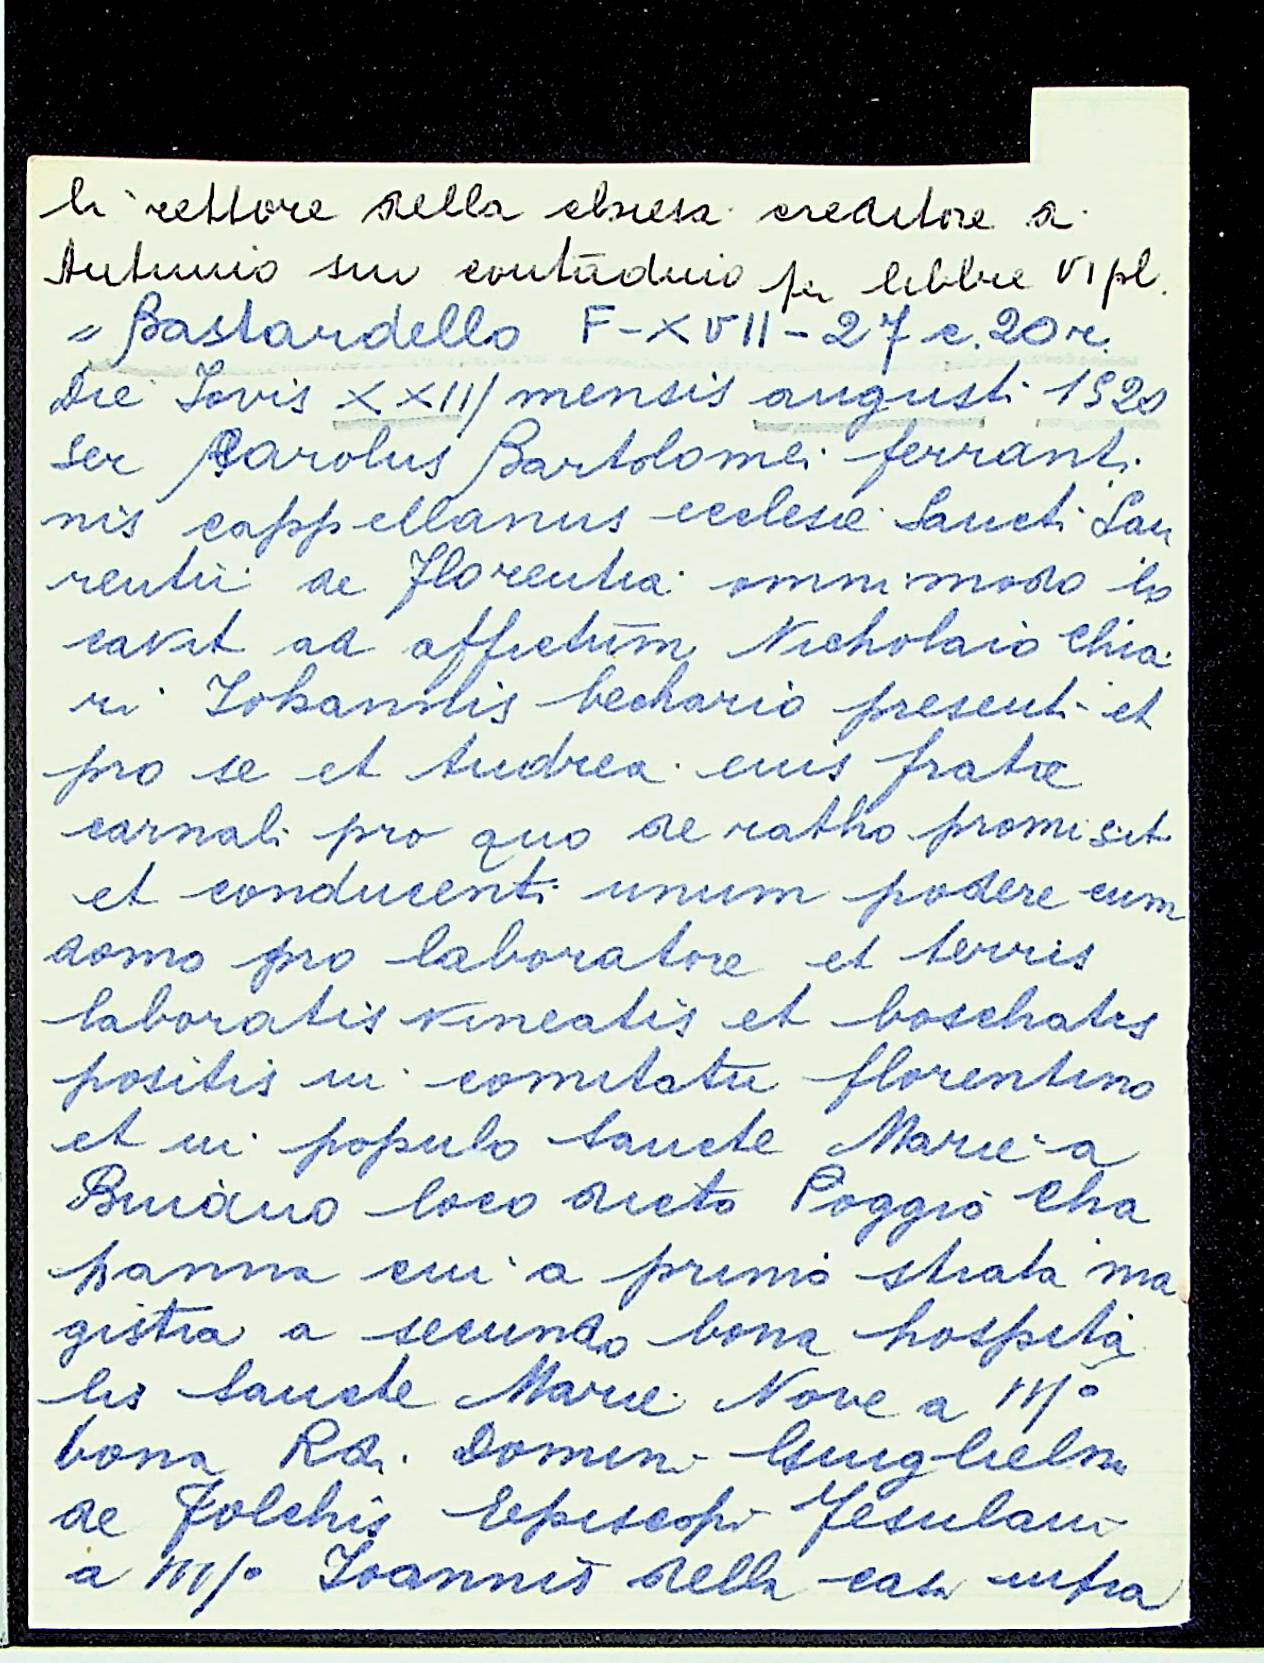 li rettore della chiesa creditore a
Antonio suo contadino per libbre VI pl.
" Bastardello F-XVII-27 c. 20 r.
Die Iovis XXIIJ mensis augusti 1520
Ser Carolus Bartolomei ferranti
nis cappellanus ecclesie Sancti Lau
rentii de Florentia omni modo lo
cavit ad affictum Nicholaio Chia
ri Iohannis bechario presenti et
pro se et Andrea eius fratre
carnali pro quo de ratho promisit
et conducenti unum podere cum
domo pro laboratore et terris
laboratis vineatis et boschatis
positis in comitatu florentino
et in populo Sancte Marie a
Buiano loco dicto Poggio Cha
panna cui a primo strata ma
gistra a secundo bona hospita
lis Sancte Marie Nove a IIJ°
bona Rdi. Domini Guuglielmi
de Folchis Episcopi Fesulani
a IIIJ° Ioannis della casa infra